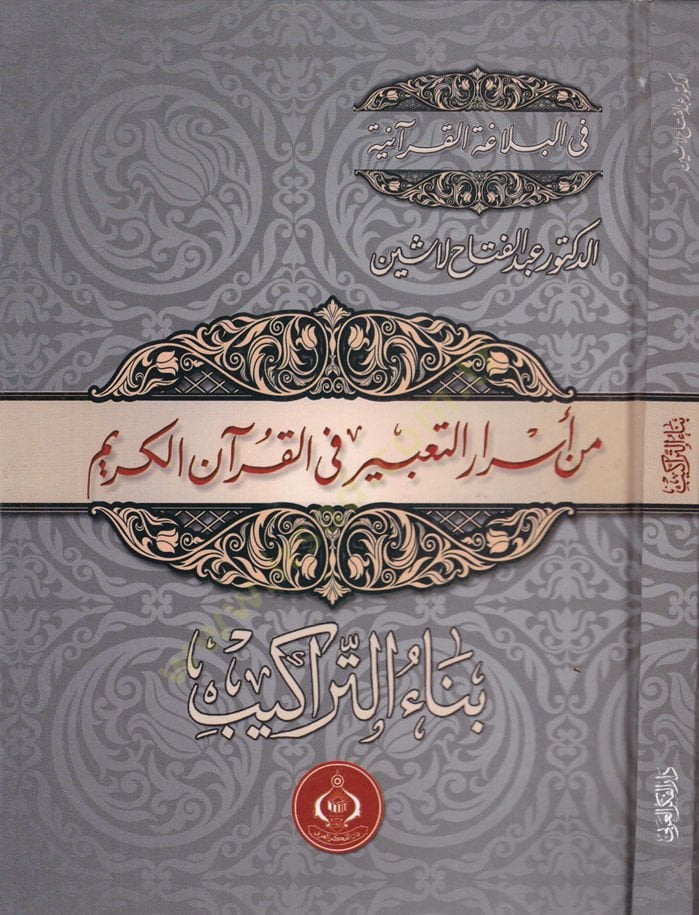 في البلاغة القرآنية
الدكتور عبد الفتاح لاشين
من أسرار التعبير في القرآن الكريم
بناءُ التّراكيبِ
دار الفكر العربي
الدكتور عبد الفتاح لاشين
بناء التراكيب
دار الفكر العربي